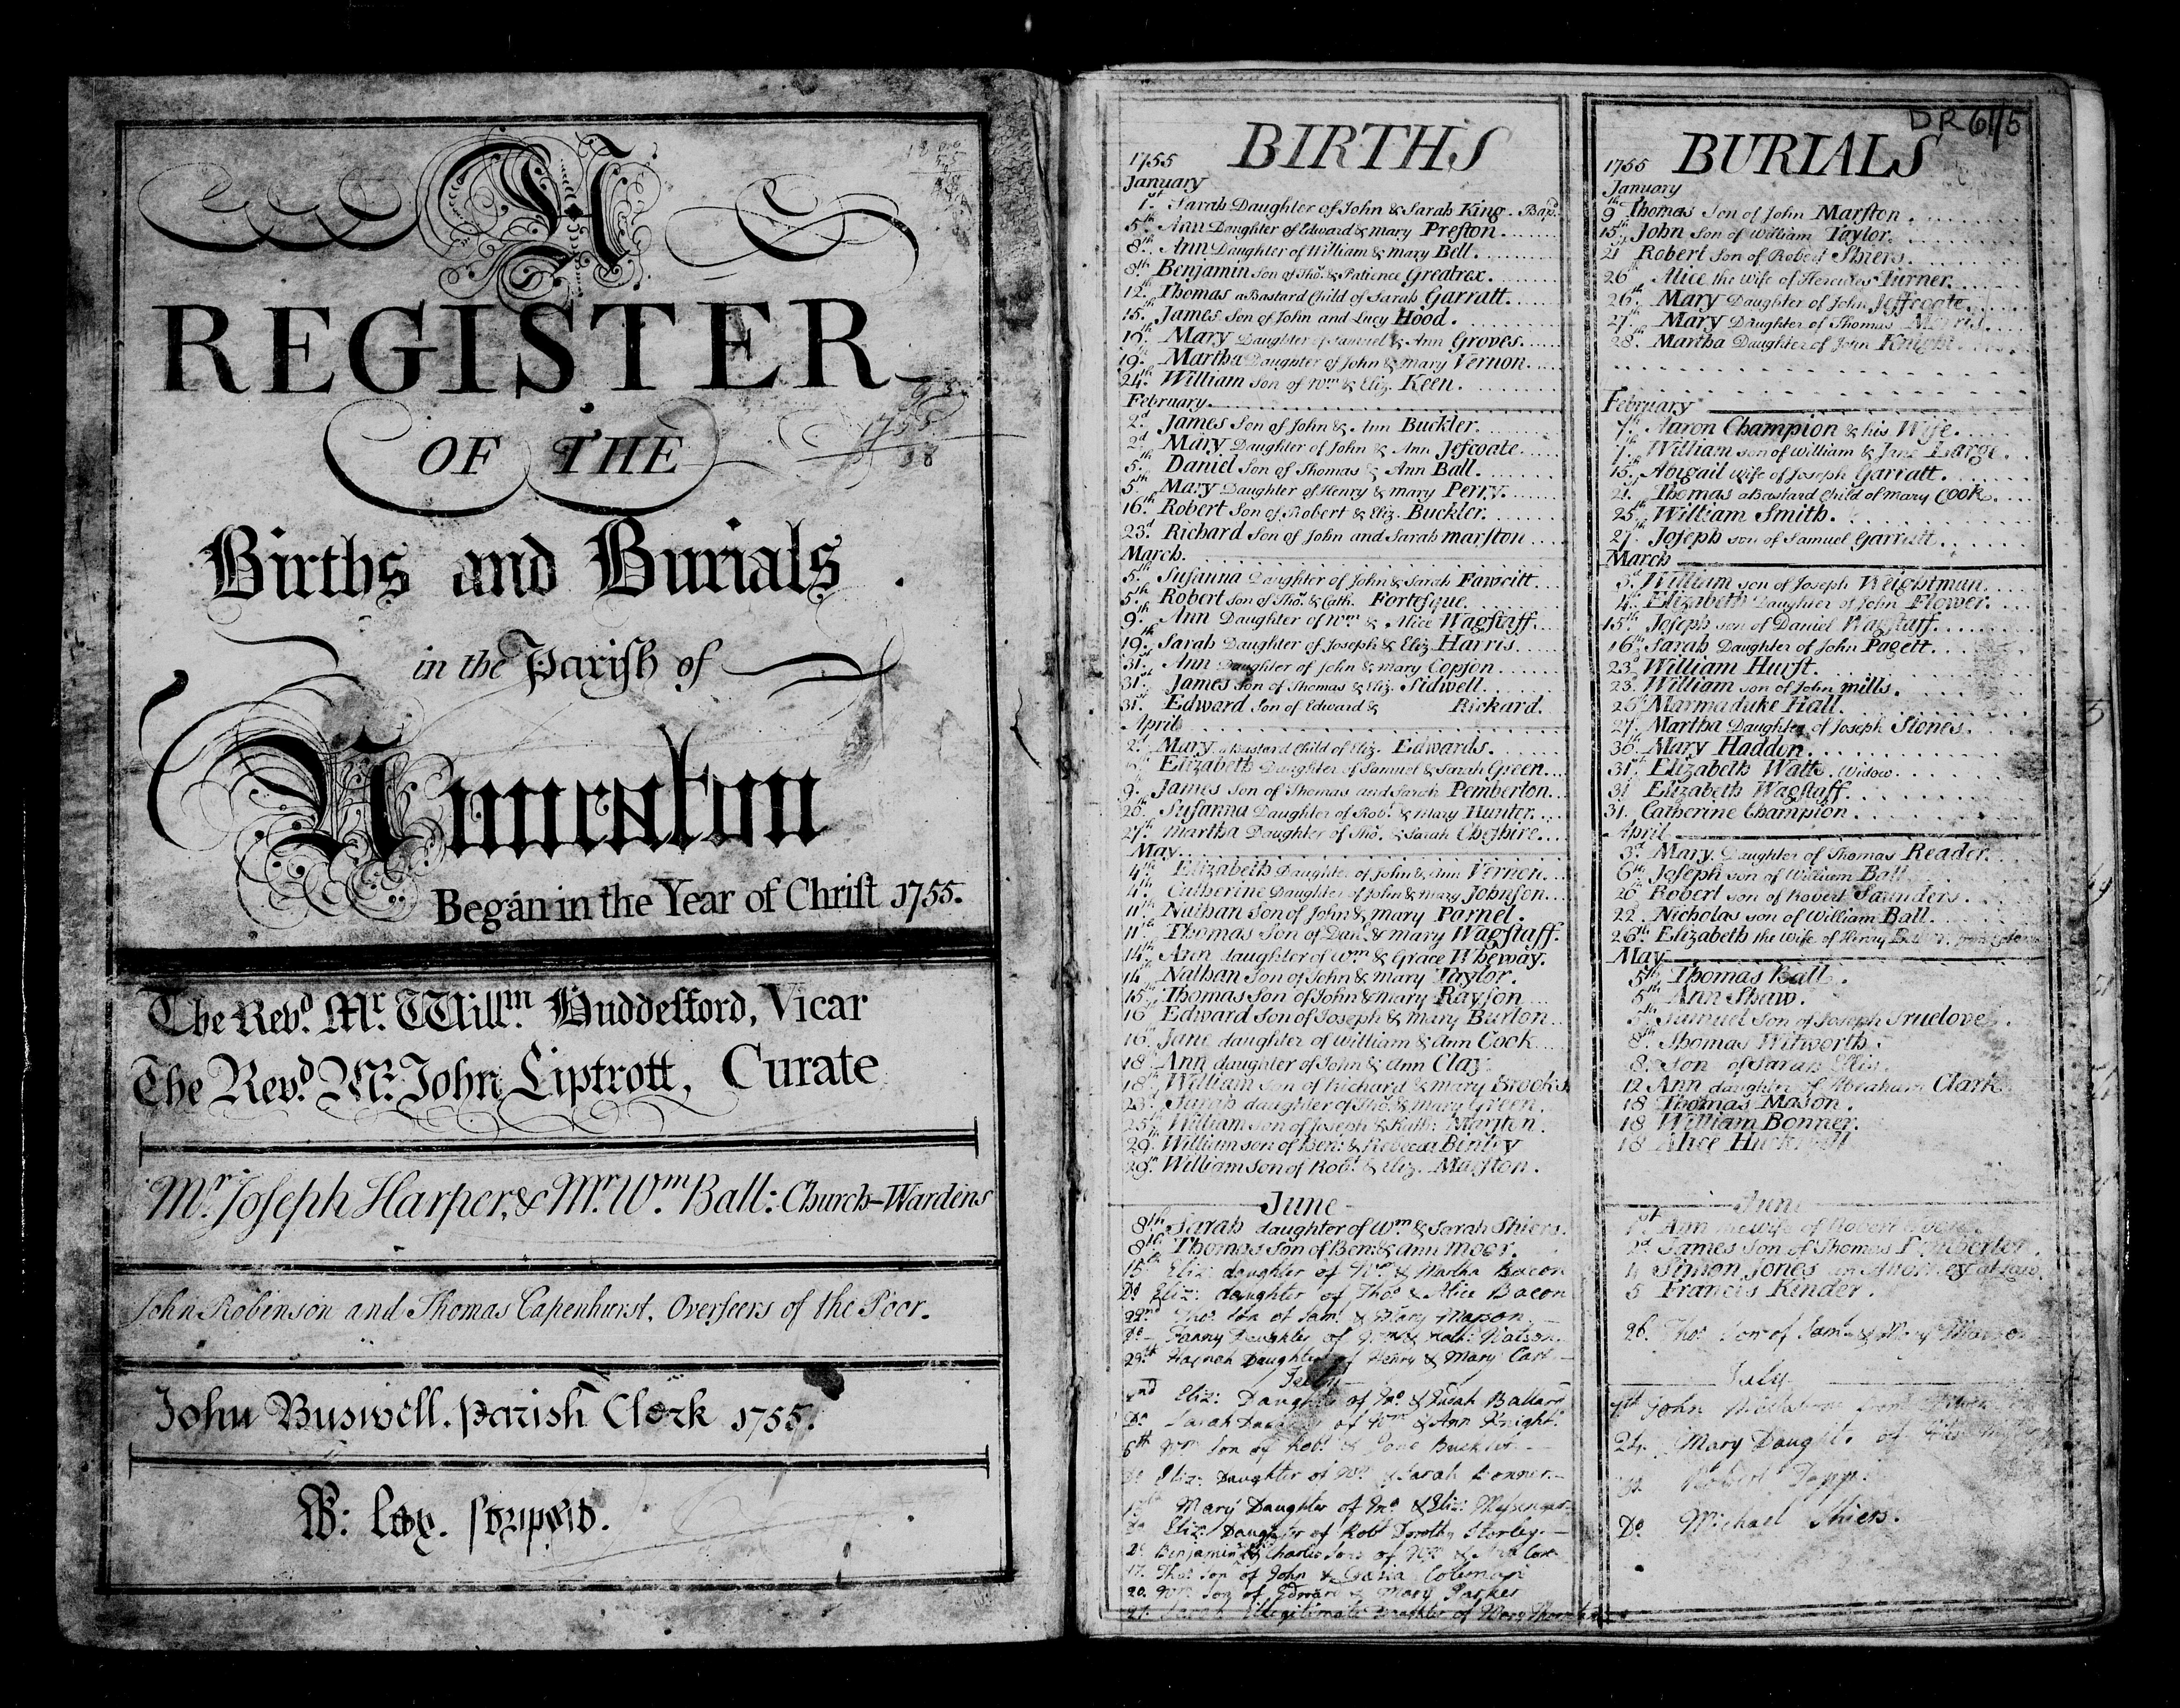 A
REGISTER
OF THE
Births and Burials
in the Pariſh of
Nuneaton
Began in the Year of Chriſt 1755.
The Revd. Mr. Willm. Huddesford, Vicar
The Revd. Mr. John Liptrott, Curate
Mr. Joſeph Harper, & Mr. Wm. Ball: Church-Wardens
John Robinson and Thomas Capenhurst, Overſeers of the Poor.
John Buswell. Parish Clerk 1755.
BIRTHS
1755
January
1st. Sarah Daughter of John & Sarah King. Bapd.
5th. Ann Daughter of Edward & mary Preſton
8th. Ann Daughter of William & mary Bell.
8th. Benjamin Son of Thos. & Patience Greatrex.
12th. Thomas a Bastard Child of Sarah Garratt.
15. James Son of John and Lucy Hood.
19th. Mary Daughter of Samuel & Ann Groves.
19th. Martha Daughter of John & mary Vernon.
24th. William Son of Wm & Eliz. Keen.
February
2d. James Son of John & Ann Buckler.
2d. Mary Daughter of John & Ann Jefcoate.
5th. Daniel Son of Thomas & Ann Ball.
5th. Mary Daughter of Henry & mary Perry.
16th. Robert Son of Robert & Eliz. Buckler.
23d. Richard Son of John and Sarah marſton
March
5th. Suſanna Daughter of John & Sarah Fawcitt.
5th. Robert Son of Thos. & Cath. Forteſque.
9th. Ann Daughter of Wm & Alice Wagſtaff.
19th. Sarah Daughter of Joseph & Eliz Harris
31st. Ann Daughter of John & mary Copſon
31st. James Son of Thomas & Eliz. Sidwell
31st. Edward Son of Edward & Rickard.
April
2d. Mary a Bastard Child of Eliz. Edwards.
Elizabeth Daughter of Samuel & Sarah Green
9. James Son of Thomas and Sarah Pemberton
20. Suſanna Daughter of Robt. & Mary Hunter.
27th. Martha Daughter of Tho. & Sarah Cheſhire.
May
4th. Elizabeth Daughter of John & Ann Vernon.
4th. Catherine Daughter of John & mary Johnſon
11th. Nathan Son of John & mary Parnel.
11th. Thomas Son of Danl. & mary Wagſtaff.
14th. Ann daughter of Wm & Grace Wheway.
14. Nathan Son of John & mary Taylor.
15th. Thomas Son of John & mary Rayſon
16 Edward Son of Joseph & mary Burton
16. Jane daughter of William & Ann Cook
18th Ann daughter of John & Ann Clay
18th William Son of Richard & mary Brooks
23d. Sarah daughter of Tho. & mary Green.
25th William Son of Joseph & Ruth: Marſton.
29 William son of Ben: & Rebecca Binley
29th. William Son of Robt. & Eliz. Marſton.
June
8th. Sarah daughter of Wm & Sarah Shiers.
8th. Thomas Son of Ben: & ann moor.
15th. Eliz: daughter of Wm & Martha Bacon
Do Eliz: daughter of Thos & Alice Bacon
22nd Thos. Son of Saml. & Mary Mason
Do Fanny Daughter of & Watson.
29th. Hannah Daughter of Henry & Mary
July
Eliz: Daughter of Jno & Sarah Ballard
Do Sarah Daughter of Wm & Ann Knight.
6th Wm Son of Robt & Jane Buckler
Do Eliz: Daughter of Wm & Sarah Bonner.
Mary Daughter of Jno & Eliz: Messenger
Do Eliz: Daughter of Robt Dorothy Storley.
Benjamin & Charles Sons of Wm & Cox
17. Thos Son of John & Coleman
20. Wm Son of Edward & Mary Parker
27. Sarah Illegitimate Daughter of Mary
BURIALS
DR 61/5
1755
January
9th Thomas Son of John Marſton.
15th. John Son of William Taylor.
21 Robert Son of Robert Shiers.
26th. Alice the Wife of Hercules Turner.
26th. Mary Daughter of John Jeffcoate.
27th. Mary Daughter of Thomas Morris.
28. Martha Daughter of John Knight
February
7th. Aaron Champion & his Wife.
7th. William son of William & Jane Large.
15th. Abigail wife of Joseph Garratt.
21. Thomas a Bastard Child of mary Cook.
25th. William Smith.
27th. Joſeph son of Samuel Garratt
March
3d. William son of Joseph Weightman.
4th. Elizabeth Daughter of John Flower.
15th. Joſeph son of Daniel Wagſtaff.
16th. Sarah Daughter of John Pagett.
23d William Hurſt.
23. William son of John mills.
25th Marmaduke Hall
27. Martha Daughter of Joseph Stones.
30. Mary Haddon.
31st Elizabeth Watts. Widow.
31 Elizabeth Wagſtaff.
31. Catherine Champion
April
3d. Mary. Daughter of Thomas Reader.
6th. Joſeph son of William Ball
20th Robert son of Robert Saunders.
22. Nicholas son of William Ball.
26th. Elizabeth the wife of Henry
May
5th. Thomas Ball.
5th. Ann Shaw.
Samuel Son of Joseph Truelove.
8th. Thomas Witworth.
8. Son of Sarah Ellis.
12 Ann daughter of Abraham Clark
18 Thomas Mason.
18 William Bonner.
18 Alice
June
1st Ann the wife of Robert
2d James Son of Thomas Pemberton.
4 Simon Jones an Attorney at Law
5 Francis Kinder.
26. Thos Son of Saml & Mary Mason
July
John
24. Mary Daughtr. of
Robert
Do Michael Shiers.